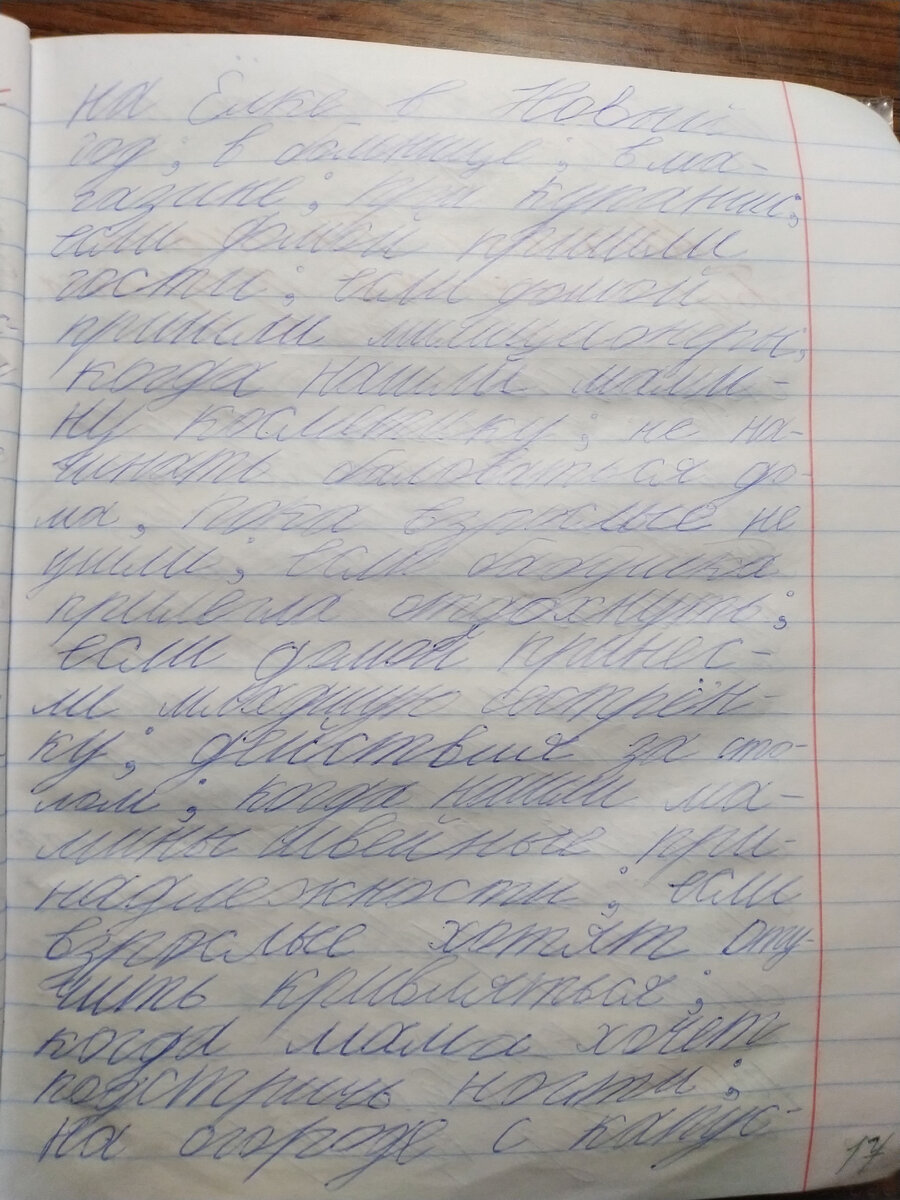 на Ёлке в Новый
год; в больнице; в ма-
газине; при купании;
если домой пришли
гости; если домой
пришли милиционеры,
когда нашли мами-
ну косметику; не на-
чинать баловаться до-
ма, пока взрослые не
ушли; если бабушка
прилегла отдохнуть;
если домой принес-
ли младшую сестрён-
ку; действия за сто-
лом; когда нашли ма-
мины швейные при-
надлежности; если
взрослые хотят оту-
чить кривляться;
когда мама хочет
подстричь ногти;
на огороде с капус-
17